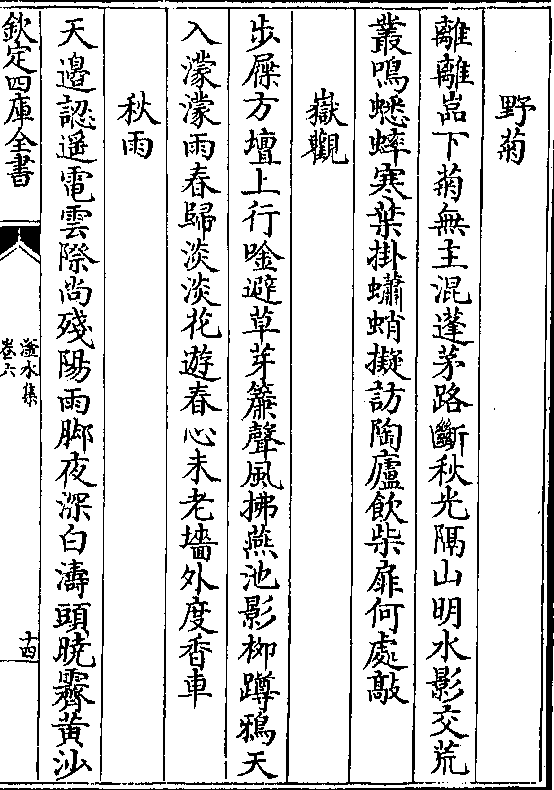 野菊
離離嵓下菊無主混蓬茅路斷秋光隔山明水影交荒
叢鳴蟋蟀寒葉掛蠨蛸擬訪陶廬飲柴扉何處敲
嶽觀
步屧方壇上行吟避草芽簾聲風拂燕池影柳蹲鴉天
入濛濛雨春歸淡淡花遊春心未老墻外度香車
秋雨
天邉認遥電雲際尚殘陽雨脚夜深白濤頭曉霽黄沙
欽定四庫全書
滏水集
卷六
十四